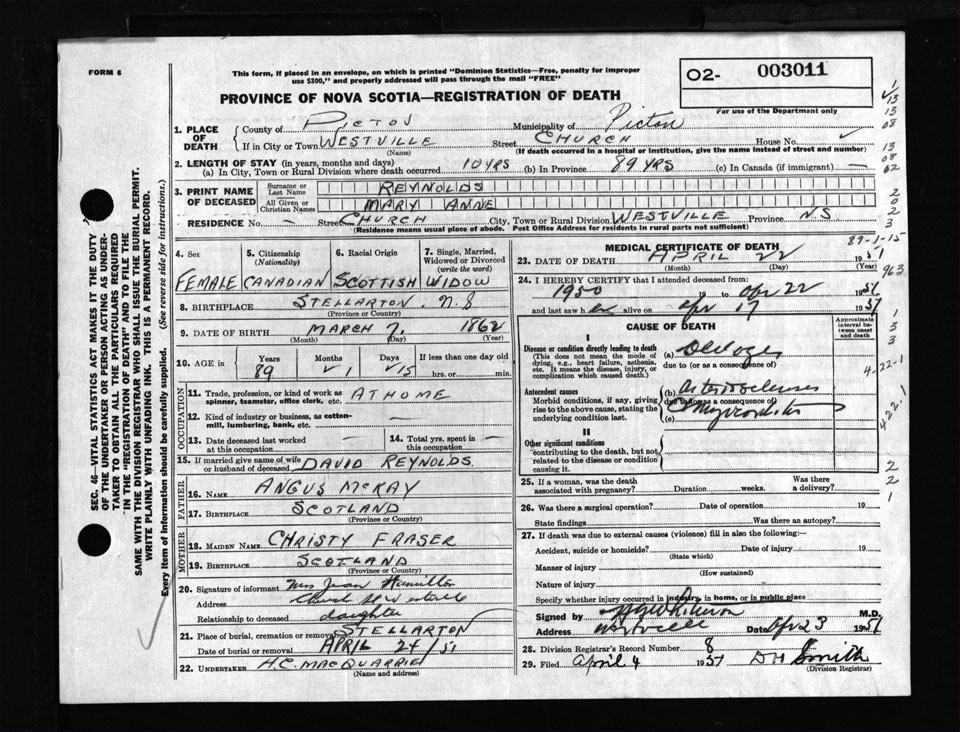 FORM 6
This form, if placed in an envelope, on which is printed "Dominion Statistics—Free, penalty for improper
use $300," and properly addressed will pass through the mail "FREE"
O2- 003011
For use of the Department only
PROVINCE OF NOVA SCOTIA—REGISTRATION OF DEATH
1. PLACE OF DEATH County of PICTOU Municipality of Pictou
If in City or Town WESTVILLE Street CHURCH House No.
(Name) (If death occurred in a hospital or institution, give the name instead of street and number)
2. LENGTH OF STAY (in years, months and days)
(a) In City, Town or Rural Division where death occurred 10 YRS (b) In Province 89 YRS (c) In Canada (if immigrant) —
3. PRINT NAME OF DECEASED Surname or Last Name REYNOLDS
All Given or Christian Names MARY ANNE
RESIDENCE No. Street CHURCH City, Town or Rural Division WESTVILLE Province N.S
(Residence means usual place of abode. Post Office Address for residents in rural parts not sufficient)
4. Sex 5. Citizenship (Nationality) 6. Racial Origin 7. Single, Married, Widowed or Divorced (write the word)
FEMALE CANADIAN SCOTTISH WIDOW
8. BIRTHPLACE STELLARTON. N.S
(Province or Country)
9. DATE OF BIRTH MARCH 7. 1862
(Month) (Day) (Year)
10. AGE in Years Months Days If less than one day old
89 1 15 hrs. or min.
OCCUPATION
11. Trade, profession, or kind of work as spinner, teamster, office clerk, etc. AT HOME
12. Kind of industry or business, as cotton-mill, lumbering, bank, etc. —
13. Date deceased last worked at this occupation — 14. Total yrs. spent in this occupation —
15. If married give name of wife or husband of deceased DAVID REYNOLDS.
FATHER
16. NAME ANGUS McKAY
17. BIRTHPLACE SCOTLAND
(Province or Country)
MOTHER
18. MAIDEN NAME CHRISTY FRASER
19. BIRTHPLACE SCOTLAND
(Province or Country)
20. Signature of informant Mrs Jean Hamilton
Address Church St Westville
Relationship to deceased daughter
21. Place of burial, cremation or removal STELLARTON
Date of burial or removal APRIL 24/51
22. UNDERTAKER H.C. MACQUARRIE
(Name and address)
MEDICAL CERTIFICATE OF DEATH
89-1-15
23. DATE OF DEATH APRIL 22 1951
(Month) (Day) (Year)
24. I HEREBY CERTIFY that I attended deceased from:
1950 19 to Apr 22 1951
and last saw h alive on Apr 17 1951
CAUSE OF DEATH
Approximate interval between onset and death
I
Disease or condition directly leading to death (a)
(This does not mean the mode of dying, e.g., heart failure, asthenia, etc. It means the disease, injury, or complication which caused death.)
due to (or as a consequence of)
Antecedent causes (b)
Morbid conditions, if any, giving rise to the above cause, stating the underlying condition last.
due to (or as a consequence of)
(c)
II
Other significant conditions
contributing to the death, but not related to the disease or condition causing it.
25. If a woman, was the death associated with pregnancy? Duration weeks. Was there a delivery?
26. Was there a surgical operation? Date of operation 19
State findings Was there an autopsy?
27. If death was due to external causes (violence) fill in also the following:—
Accident, suicide or homicide? Date of injury 19
(State which)
Manner of injury
(How sustained)
Nature of injury
Specify whether injury occurred in industry, in homes, or in public place
Signed by M.D.
Address Westville Date Apr 23 1951
28. Division Registrar's Record Number 8
29. Filed April 4 1951 DH Smith
(Division Registrar)
SEC. 46—VITAL STATISTICS ACT MAKES IT THE DUTY
OF THE UNDERTAKER OR PERSON ACTING AS UNDER-
TAKER TO OBTAIN ALL THE PARTICULARS REQUIRED
IN THE "REGISTRATION OF DEATH" AND TO FILE THE
SAME WITH THE DIVISION REGISTRAR WHO SHALL ISSUE THE BURIAL PERMIT.
WRITE PLAINLY WITH UNFADING INK. THIS IS A PERMANENT RECORD.
Every item of Information should be carefully supplied. (See reverse side for instructions.)
1
13
13
08
13
08
62
2
0
2
3
963
1
3
3
4-22-1
422.1
2
2
1